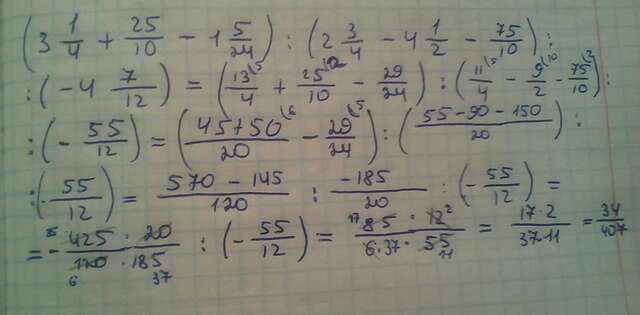 (3 1/4 + 25/10 - 1 5/24) : (2 3/4 - 4 1/2 - 75/10) :
: (-4 7/12) = (13/4 (5 + 25/10 (2 - 29/24) : (11/4 (5 - 9/2 (10 - 75/10 (2) :
: (- 55/12) = (45+50/20 (6 - 29/24 (5) : (55-90-150/20) :
: (- 55/12) = 570-145/120 : -185/20 : (- 55/12) =
= - 85 425 · 20/120 6 · 185 37 : (- 55/12) = 17 85 · 12 2/6·37· 55 11 = 17·2/37·11 = 34/407